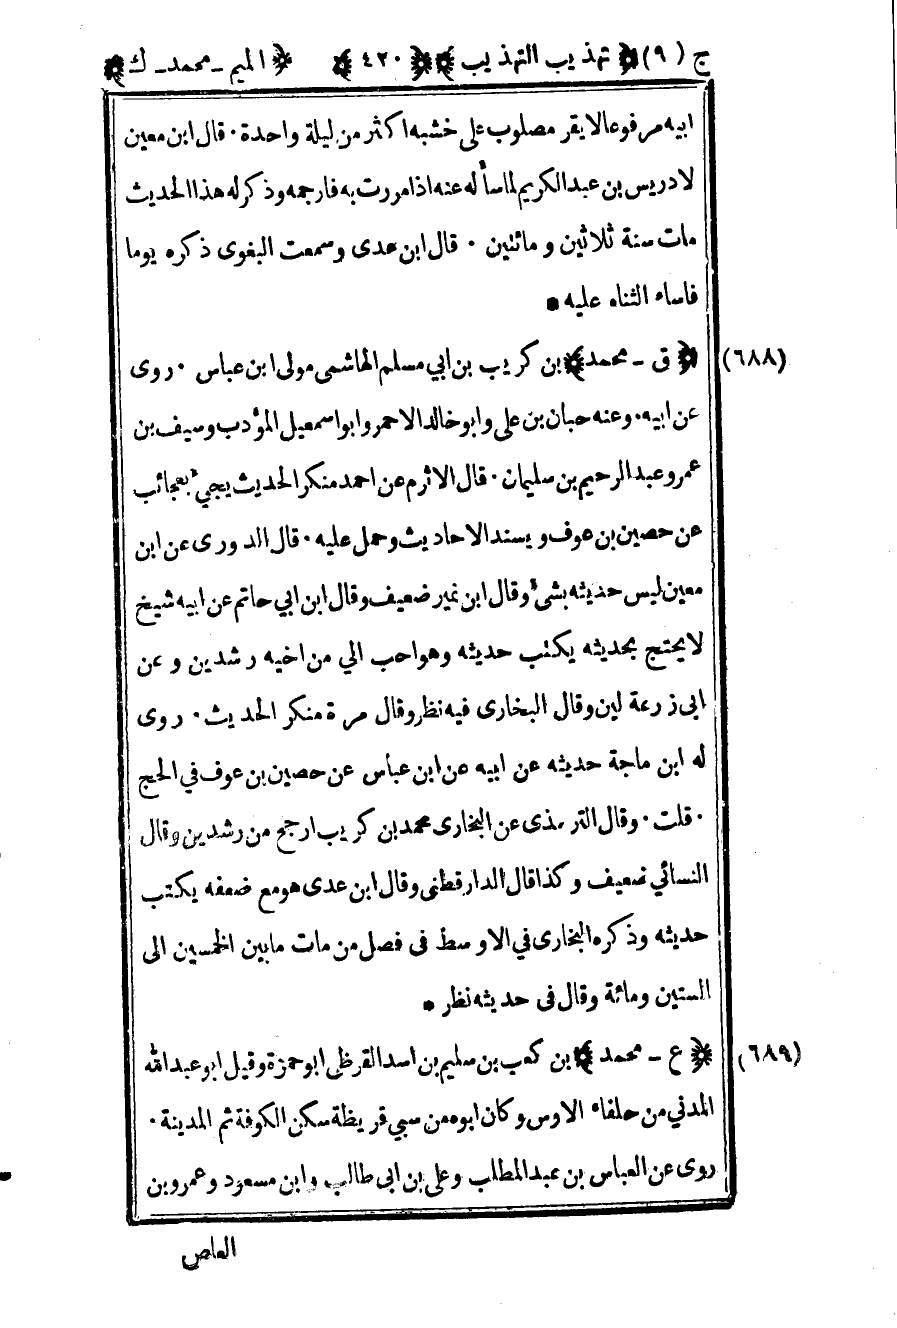 ج (٩) ﴿ تهذيب التهذيب ﴾ ﴿ ٤٢٠ ﴾ ﴿ الميم - محمد - ك ﴾
ابيه مرفوعا لا يقر مصلوب على خشبه اكثر من ليلة واحدة ٠ قال ابن معين
لادريس بن عبد الكريم لما سأله عنه اذا مررت به فارجمه وذكر له هذا الحديث
مات سنة ثلاثين و مائتين ٠ قال ابن عدى وسمعت البغوى ذكره يوما
فاساء الثناء عليه •
(٦٨٨) ﴿ ق - محمد ﴾ بن كريب بن ابي مسلم الهاشمى مولى ابن عباس ٠ روى
عن ابيه ٠ وعنه حبان بن على وابو خالد الاحمر وابو اسمعيل المؤدب وسيف بن
عمر وعبد الرحيم بن سليمان ٠ قال الاثرم عن احمد منكر الحديث يجيء بعجائب
عن حصين بن عوف ويسند الاحاديث وحمل عليه ٠ قال الدورى عن ابن
معين ليس حديثه بشئ وقال ابن نمير ضعيف وقال ابن ابي حاتم عن ابيه شيخ
لا يحتج بحديثه يكتب حديثه وهو احب الي من اخيه رشدين و عن
ابى زرعة لين وقال البخارى فيه نظر وقال مرة منكر الحديث ٠ روى
له ابن ماجة حديثه عن ابيه عن ابن عباس عن حصين بن عوف في الحج
٠ قلت ٠ وقال الترمذى عن البخارى محمد بن كريب ارجح من رشدين وقال
النسائي ضعيف و كذا قال الدارقطنى وقال ابن عدى هو مع ضعفه يكتب
حديثه وذكره البخارى في الاوسط فى فصل من مات مابين الخمسين الى
الستين ومائة وقال فى حديثه نظر •
(٦٨٩) ﴿ ع - محمد ﴾ بن كعب بن سليم بن اسد القرظى ابو حمزة وقيل ابو عبد الله
المدني من حلفاء الاوس وكان ابوه من سبي قريظة سكن الكوفة ثم المدينة ٠
روى عن العباس بن عبد المطلب وعلى بن ابى طالب وابن مسعود وعمرو بن
العاص